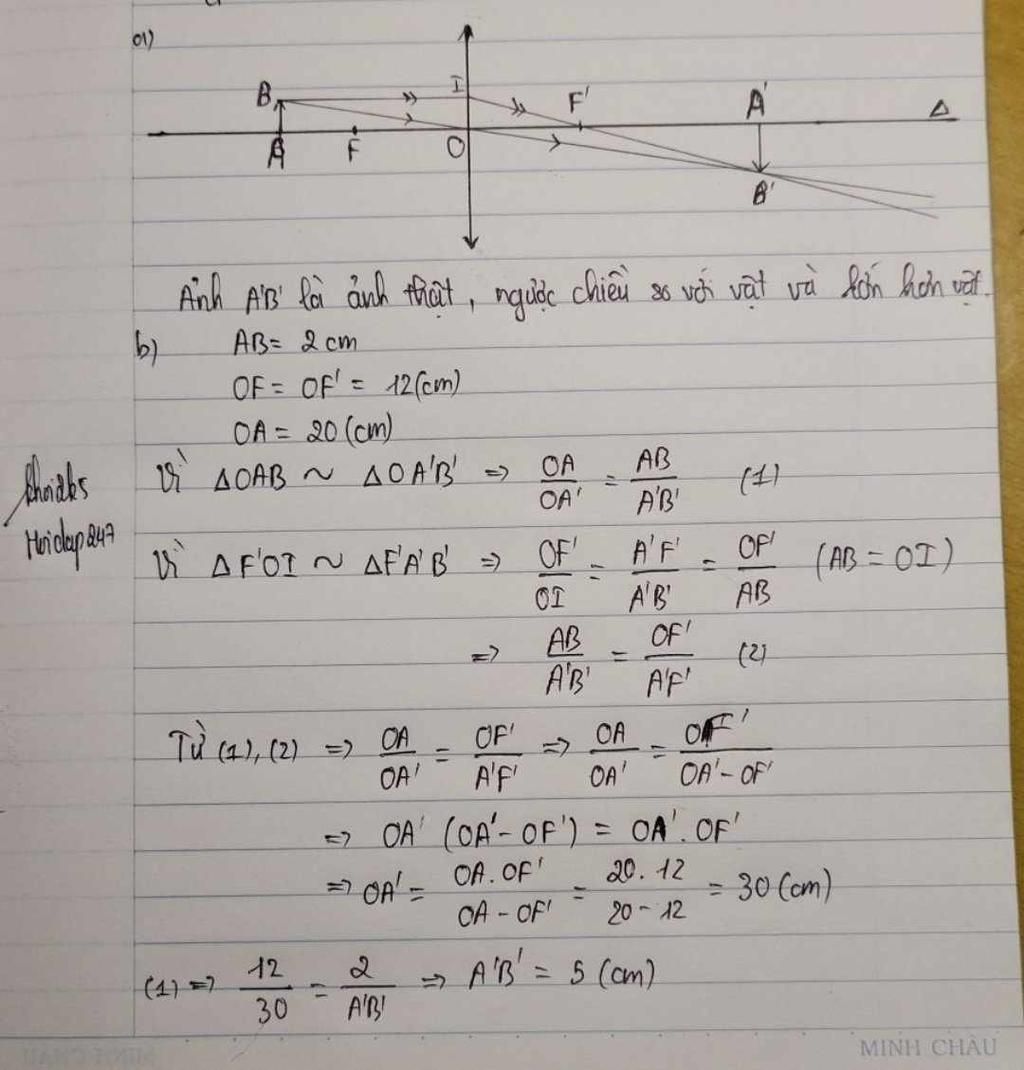 a)
B I F' A' Δ
A F O
B'
Ảnh A'B' là ảnh thật, ngược chiều so với vật và lớn hơn vật.
b) AB = 2 cm
OF = OF' = 12 (cm)
OA = 20 (cm)
Vì ΔOAB ~ ΔOA'B' => OA/OA' = AB/A'B' (1)
Hoidap247
Vì ΔF'OI ~ ΔF'A'B' => OF'/OI = A'F'/A'B' = OF'/AB (AB = OI)
=> AB/A'B' = OF'/A'F' (2)
Từ (1), (2) => OA/OA' = OF'/A'F' => OA/OA' = OF'/OA' - OF'
=> OA' (OA' - OF') = OA'. OF'
=> OA' = OA. OF'/OA - OF' = 20. 12/20 - 12 = 30 (cm)
(1) => 12/30 = 2/A'B' => A'B' = 5 (cm)
MINH CHÂU